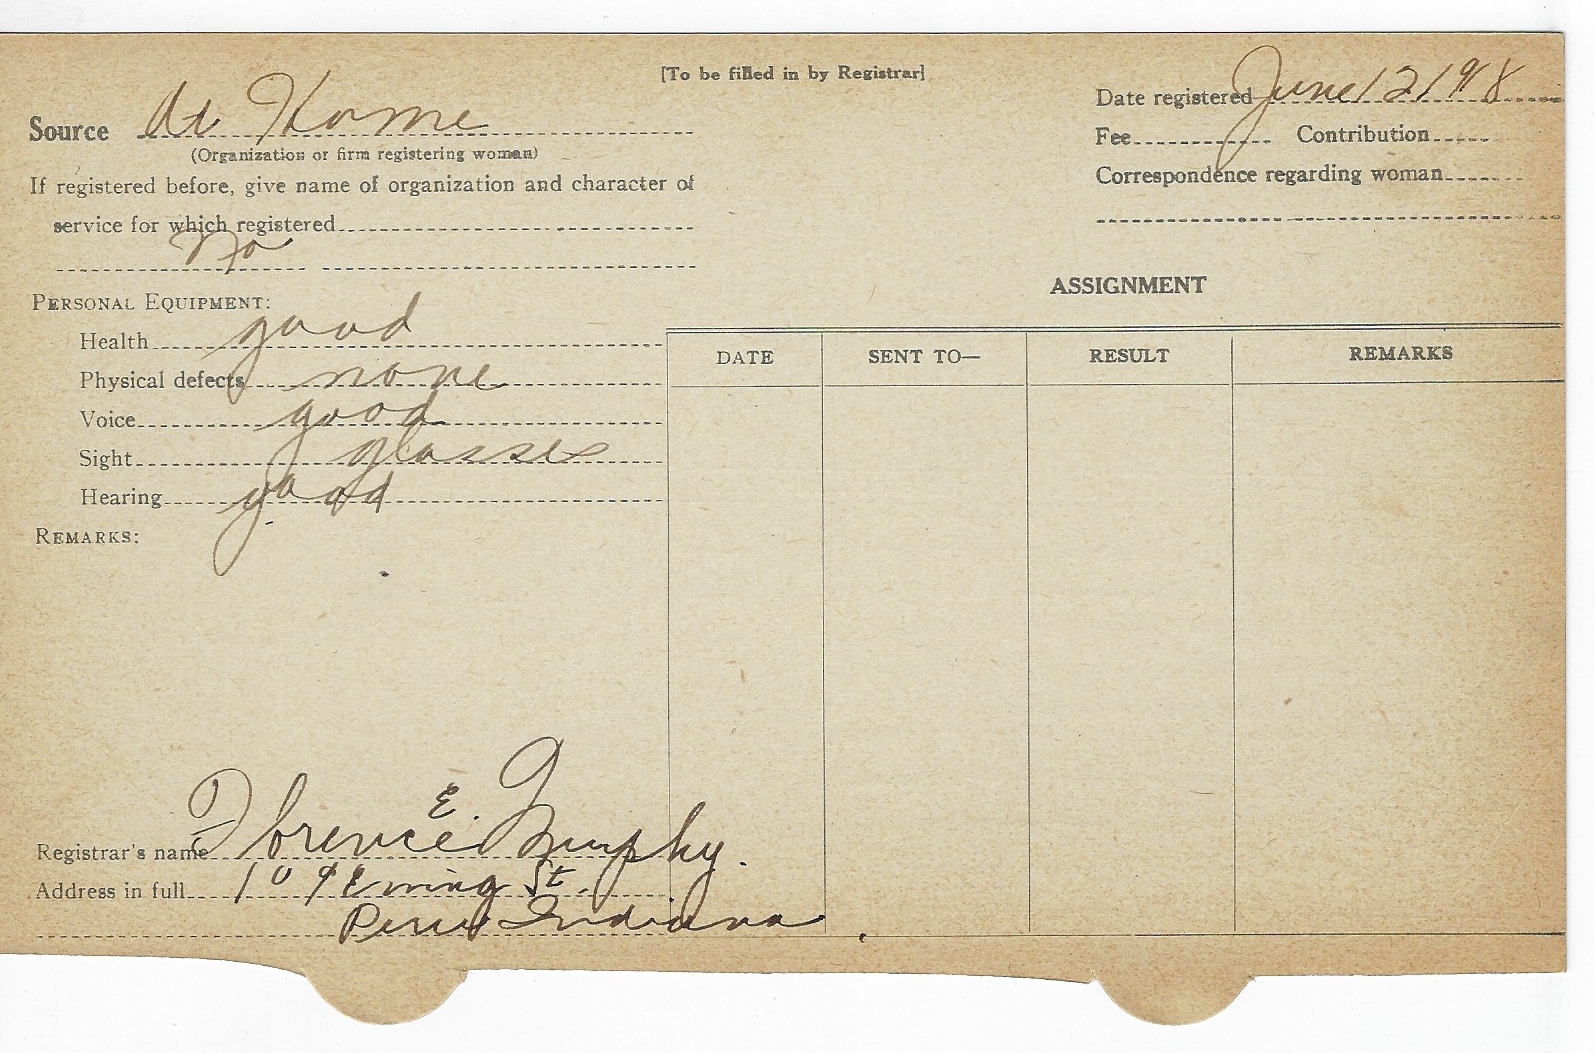 [To be filled in by Registrar]
Source At Home
(Organization or firm registering woman)
If registered before, give name of organization and character of
service for which registered
No
PERSONAL EQUIPMENT:
Health good
Physical defects none
Voice good
Sight glasses
Hearing good
REMARKS:
Date registered June 12 1918
Fee Contribution
Correspondence regarding woman
ASSIGNMENT
DATE SENT TO— RESULT REMARKS
Registrar's name Florence E. Murphy.
Address in full 109 Ewing St.
Peru Indiana